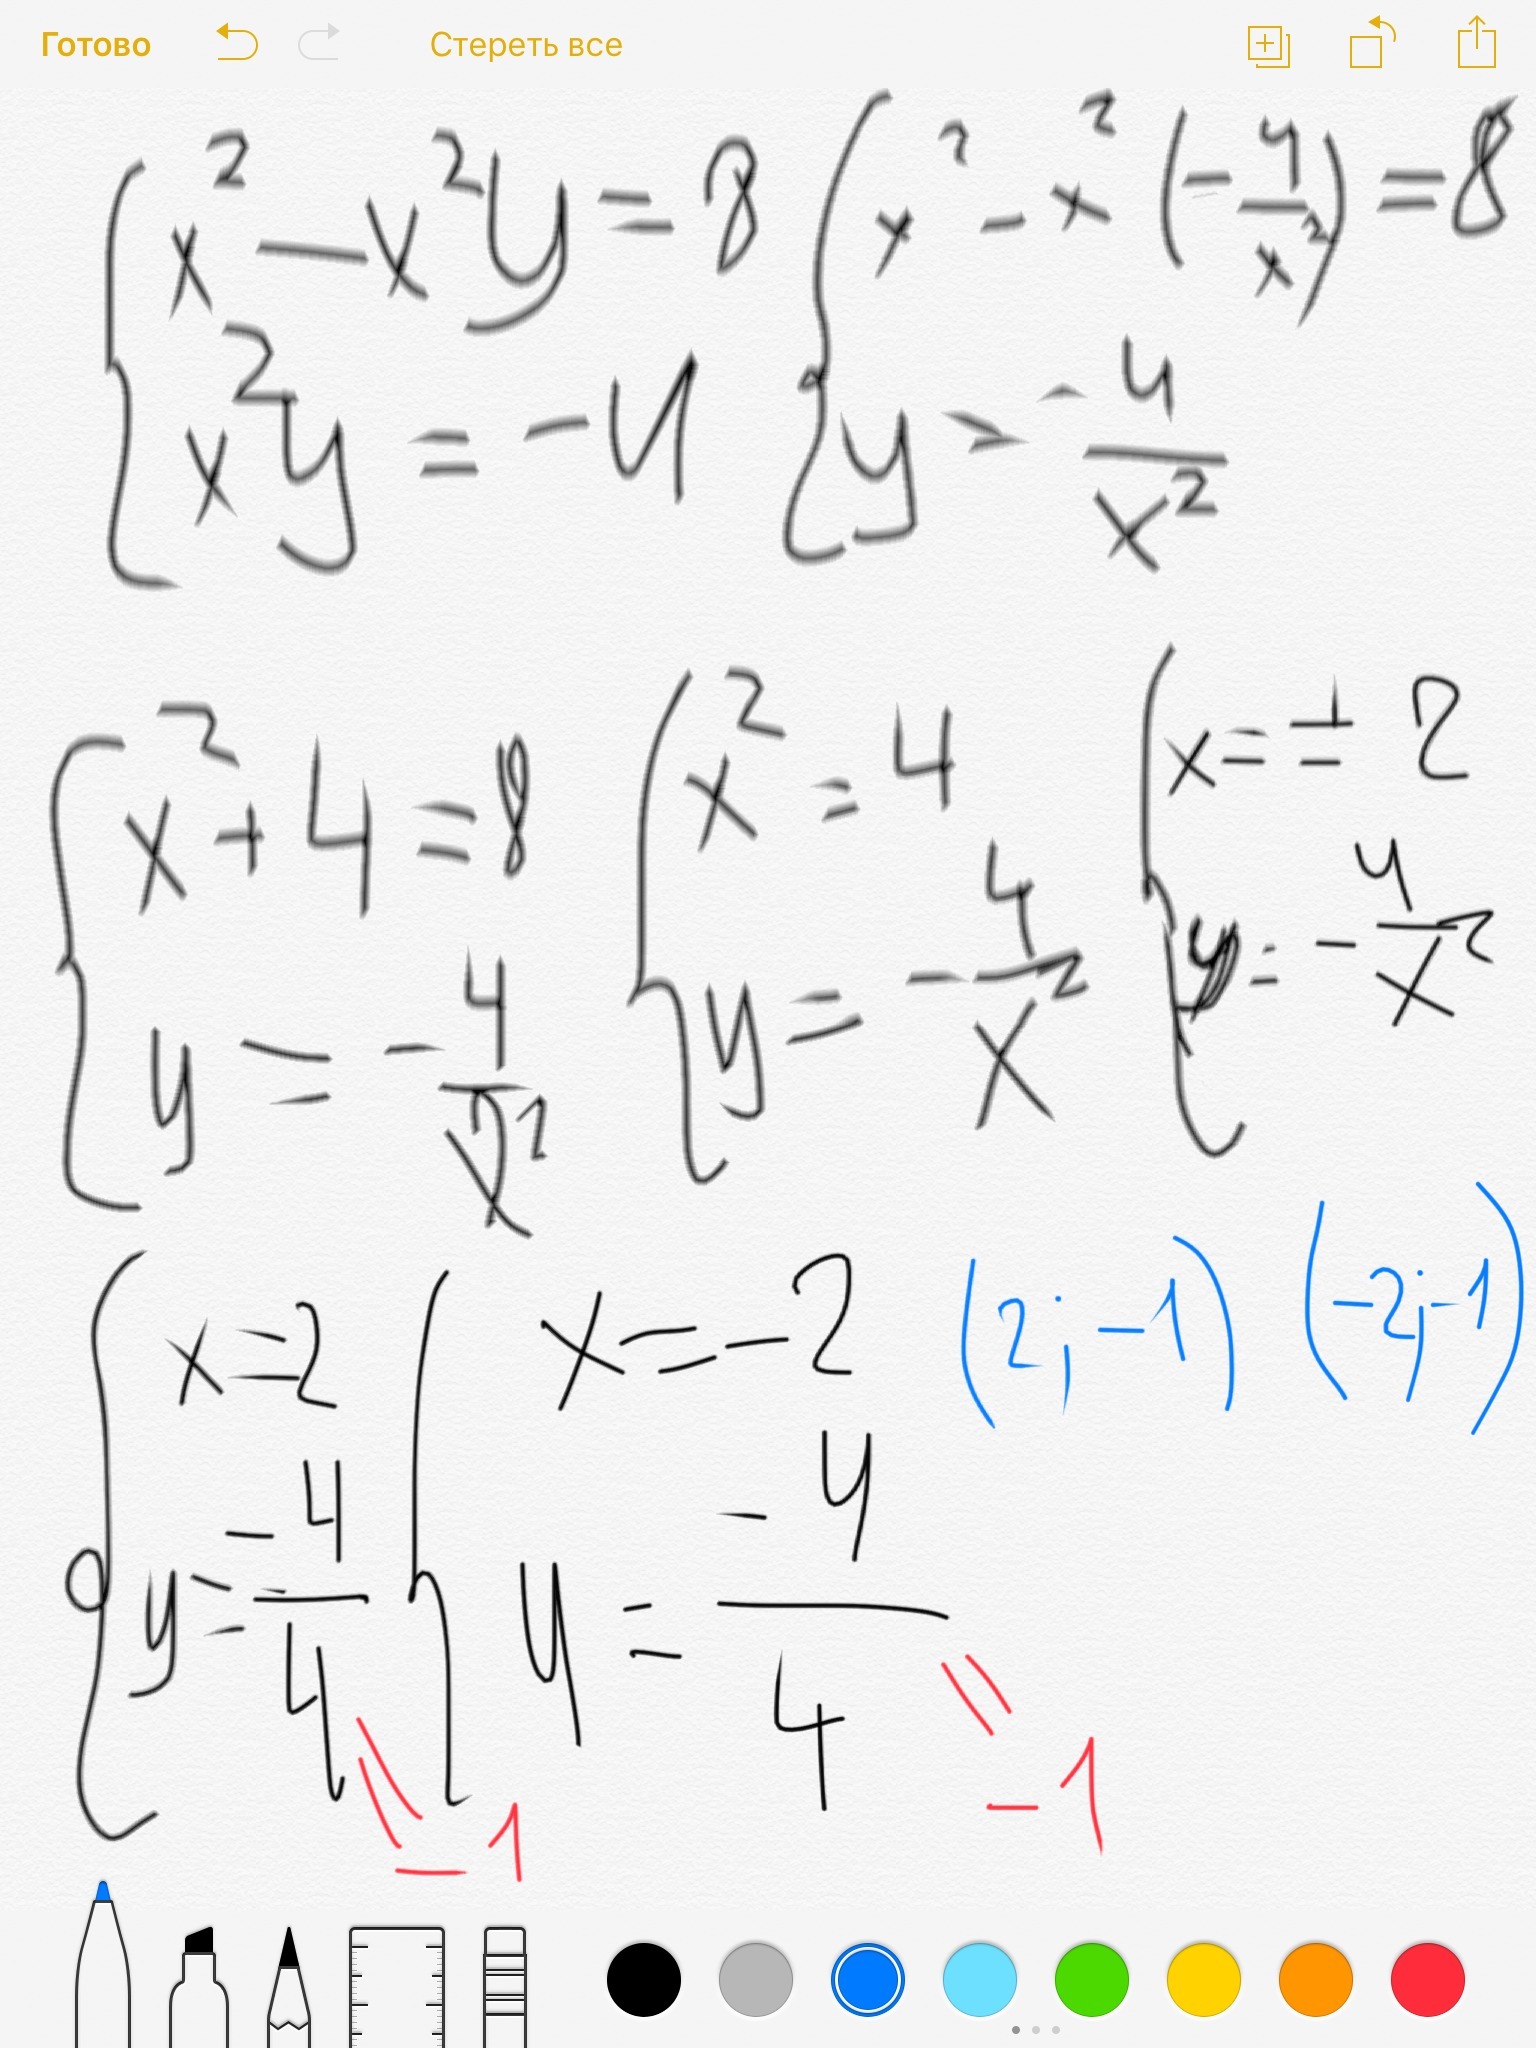 Готово Стереть все
x² − x²y = 8
x²y = −4
x² − x²(−4/x²) = 8
y = −4/x²
x² + 4 = 8
y = −4/x²
x² = 4
y = −4/x²
x = ± 2
y = −4/x²
x = 2
y = −4/4 = −1
x = −2
y = −4/4 = −1
(2; −1) (−2; −1)